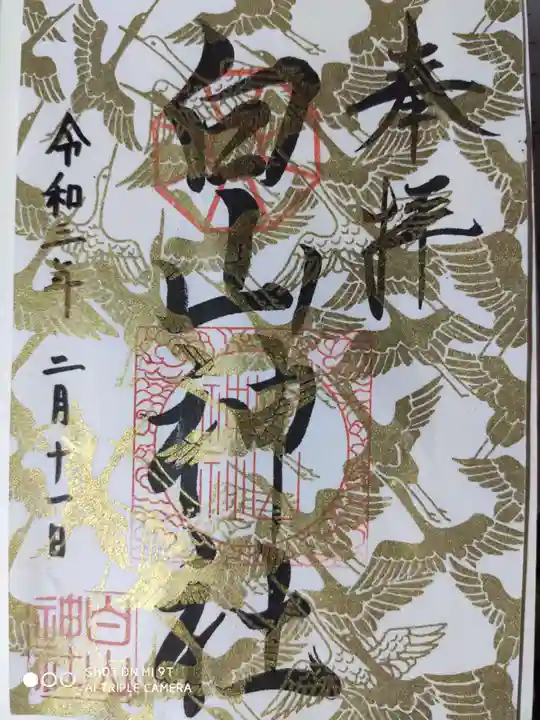 奉拝
白山神社
令和三年 二月十一日
白山神社
SHOT ON MI 9T
AI TRIPLE CAMERA